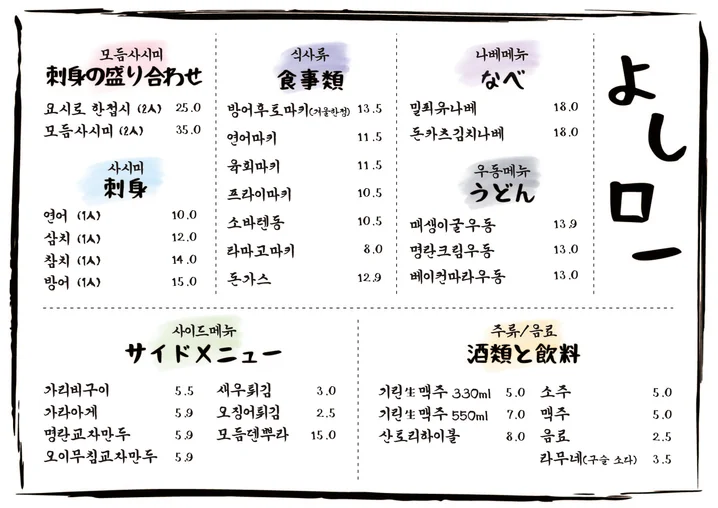 모듬사시미
刺身の盛り合わせ
요시로 한접시 (2人) 25.0
모듬사시미 (2人) 35.0
사시미
刺身
연어 (1人) 10.0
삼치 (1人) 12.0
참치 (1人) 14.0
방어 (1人) 15.0
식사류
食事類
방어후토마키(겨울한정) 13.5
연어마키 11.5
육회마키 11.5
프라이마키 10.5
소바텐동 10.5
타마고마키 8.0
돈가스 12.9
나베메뉴
なべ
밀푀유나베 18.0
돈카츠김치나베 18.0
우동메뉴
うどん
매생이굴우동 13.9
명란크림우동 13.0
베이컨마라우동 13.0
よしロー
사이드메뉴
サイドメニュー
가리비구이 5.5
가라아게 5.9
명란교자만두 5.9
오이무침교자만두 5.9
새우튀김 3.0
오징어튀김 2.5
모듬덴뿌라 15.0
주류/음료
酒類と飲料
기린生맥주 330ml 5.0
기린生맥주 550ml 7.0
산토리하이볼 8.0
소주 5.0
맥주 5.0
음료 2.5
라무네(구슬 소다) 3.5